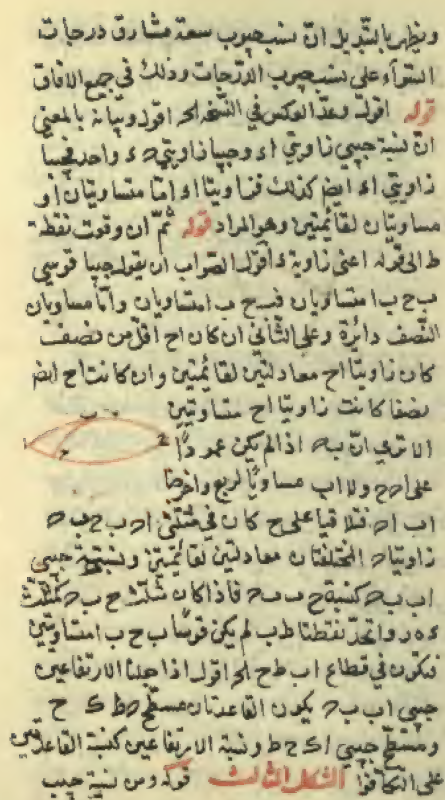 ويظهر بالتبديل ان نسب جيوب سعة مشارق درجات
السواء على نسب جيوب الدرجات وذلك في جميع الافاق
قوله اقول وهذا العكس في النسخة الخ اقول وبيانه بالمعنى
ان نسبة جيبي زاويتي ا ء وجيبا زاويتي ح ء واحد فجيبا
زاويتي ا ء ايضا كذلك فزاويتا ا ء اما متساويتان او
مساويتان لقائمتين وهو المراد قوله ثم ان وقوت نقطة
ط الى قوله اعني زاوية ء اقول الصواب ان يقول جيبا قوسي
ب ح ب ا متساويان فب ح ب ا متساويان واما مساويان
لنصف دائرة وعلى الثاني ان كان ا ح اقل من نصف
كان زاويتا ا ح معادلتين لقائمتين وان كانت ا ح ايضا
نصفا كانت زاويتا ا ح متساويتين
الا ترى ان ب ه اذا لم يكن عمودا
على ا ه ح ولا ا ب مساويا لربع واخرجنا
ا ب ا ه فتلاقيا على ح كان في مثلثي ا ه ب ح ب ه
زاويتا ه المختلفتان معادلتين لقائمتين ونسبة جيبي
ا ب ب ه كنسبة ح ب ب ه فاذا كان مثلث ح ب ه كمثلث
ء ه ر واتحد نقطتا ط ب لم يكن قوسا ب ح ب ا متساويتين
فيكون في قطاع ا ب ط ح الخ اقول اذا جعلنا الارتفاعين
جيبي ا ب ب ح يكون القاعدتان مسطح ح ط ك ح
ومسطح جيبي ا ك ح ط ونسبة الارتفاعين كنسبة القاعدتين
على التكافؤ الشكل الثالث قوله ومن نسبة جيب